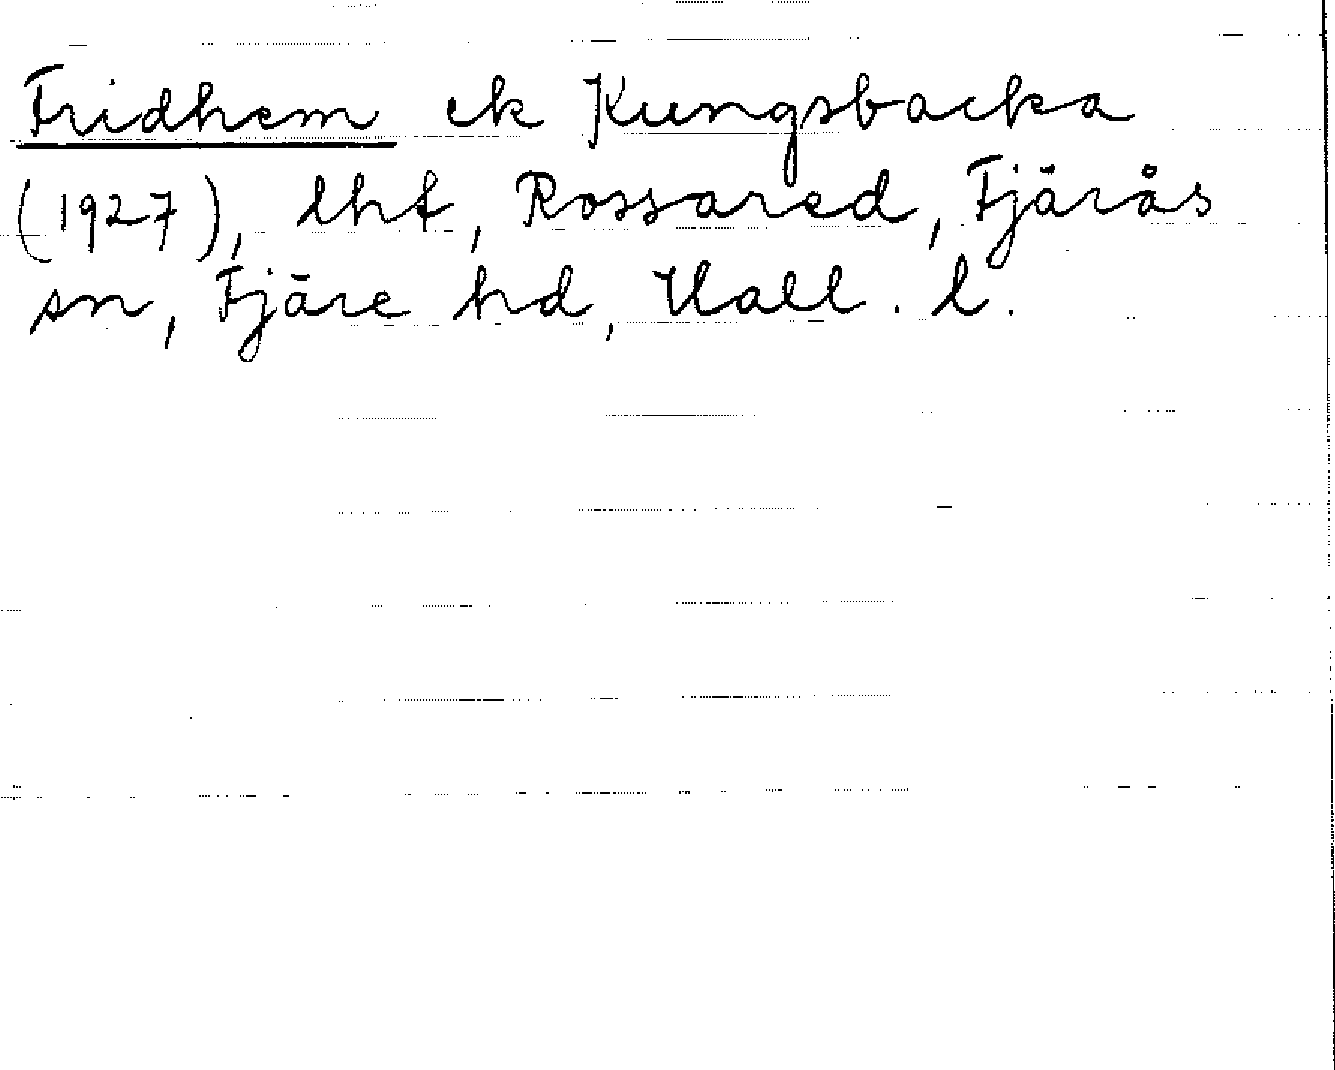 Fridhem ek Kungsbacka
(1927), lht, Rossared, Fjärås
sn, Fjäre hd, Hall. l.